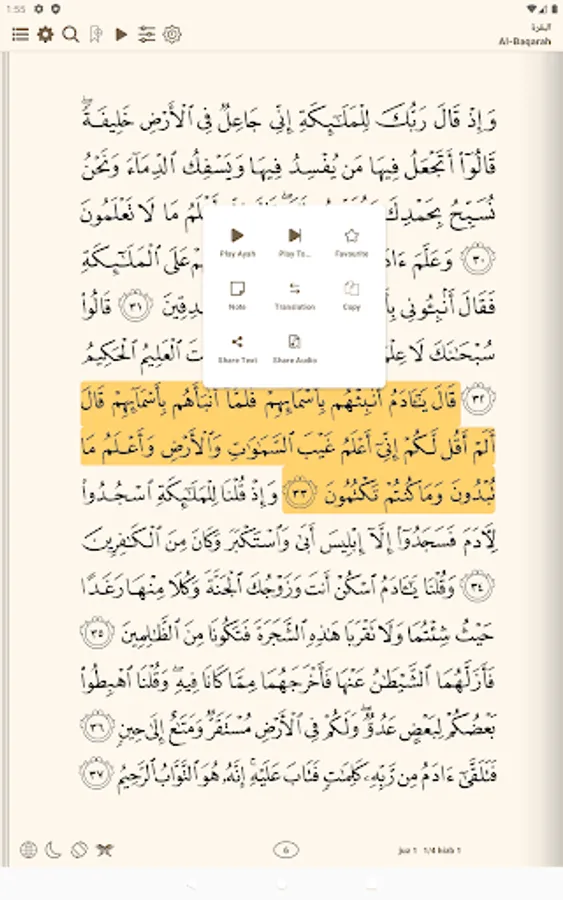 1:55
البقرة
Al-Baqarah
وَإِذْ قَالَ رَبُّكَ لِلْمَلَٰٓئِكَةِ إِنِّي جَاعِلٌ فِي ٱلْأَرْضِ خَلِيفَةً ۖ
قَالُوٓا۟ أَتَجْعَلُ فِيهَا مَن يُفْسِدُ فِيهَا وَيَسْفِكُ ٱلدِّمَآءَ وَنَحْنُ
نُسَبِّحُ بِحَمْدِكَ مَا لَا تَعْلَمُونَ
٣٠ وَعَلَّمَ عَلَى ٱلْمَلَٰٓئِكَةِ
فَقَالَ أَنۢبِـُٔونِي ٣١ قَالُوا۟
سُبْحَٰنَكَ لَا ٱلْعَلِيمُ ٱلْحَكِيمُ
٣٢ قَالَ يَٰٓـَٔادَمُ أَنۢبِئْهُم بِأَسْمَآئِهِمْ ۖ فَلَمَّآ أَنۢبَأَهُم بِأَسْمَآئِهِمْ قَالَ
أَلَمْ أَقُل لَّكُمْ إِنِّيٓ أَعْلَمُ غَيْبَ ٱلسَّمَٰوَٰتِ وَٱلْأَرْضِ وَأَعْلَمُ مَا
تُبْدُونَ وَمَا كُنتُمْ تَكْتُمُونَ ٣٣ وَإِذْ قُلْنَا لِلْمَلَٰٓئِكَةِ ٱسْجُدُوا۟
لِـَٔادَمَ فَسَجَدُوٓا۟ إِلَّآ إِبْلِيسَ أَبَىٰ وَٱسْتَكْبَرَ وَكَانَ مِنَ ٱلْكَٰفِرِينَ
٣٤ وَقُلْنَا يَٰٓـَٔادَمُ ٱسْكُنْ أَنتَ وَزَوْجُكَ ٱلْجَنَّةَ وَكُلَا مِنْهَا رَغَدًا
حَيْثُ شِئْتُمَا وَلَا تَقْرَبَا هَٰذِهِ ٱلشَّجَرَةَ فَتَكُونَا مِنَ ٱلظَّٰلِمِينَ ٣٥
فَأَزَلَّهُمَا ٱلشَّيْطَٰنُ عَنْهَا فَأَخْرَجَهُمَا مِمَّا كَانَا فِيهِ ۖ وَقُلْنَا ٱهْبِطُوا۟
بَعْضُكُمْ لِبَعْضٍ عَدُوٌّ ۖ وَلَكُمْ فِي ٱلْأَرْضِ مُسْتَقَرٌّ وَمَتَٰعٌ إِلَىٰ حِينٍ ٣٦
فَتَلَقَّىٰٓ ءَادَمُ مِن رَّبِّهِۦ كَلِمَٰتٍ فَتَابَ عَلَيْهِ ۚ إِنَّهُۥ هُوَ ٱلتَّوَّابُ ٱلرَّحِيمُ ٣٧
Play Ayah Play To... Favourite
Note Translation Copy
Share Text Share Audio
6
juz 1 1/4 hizb 1